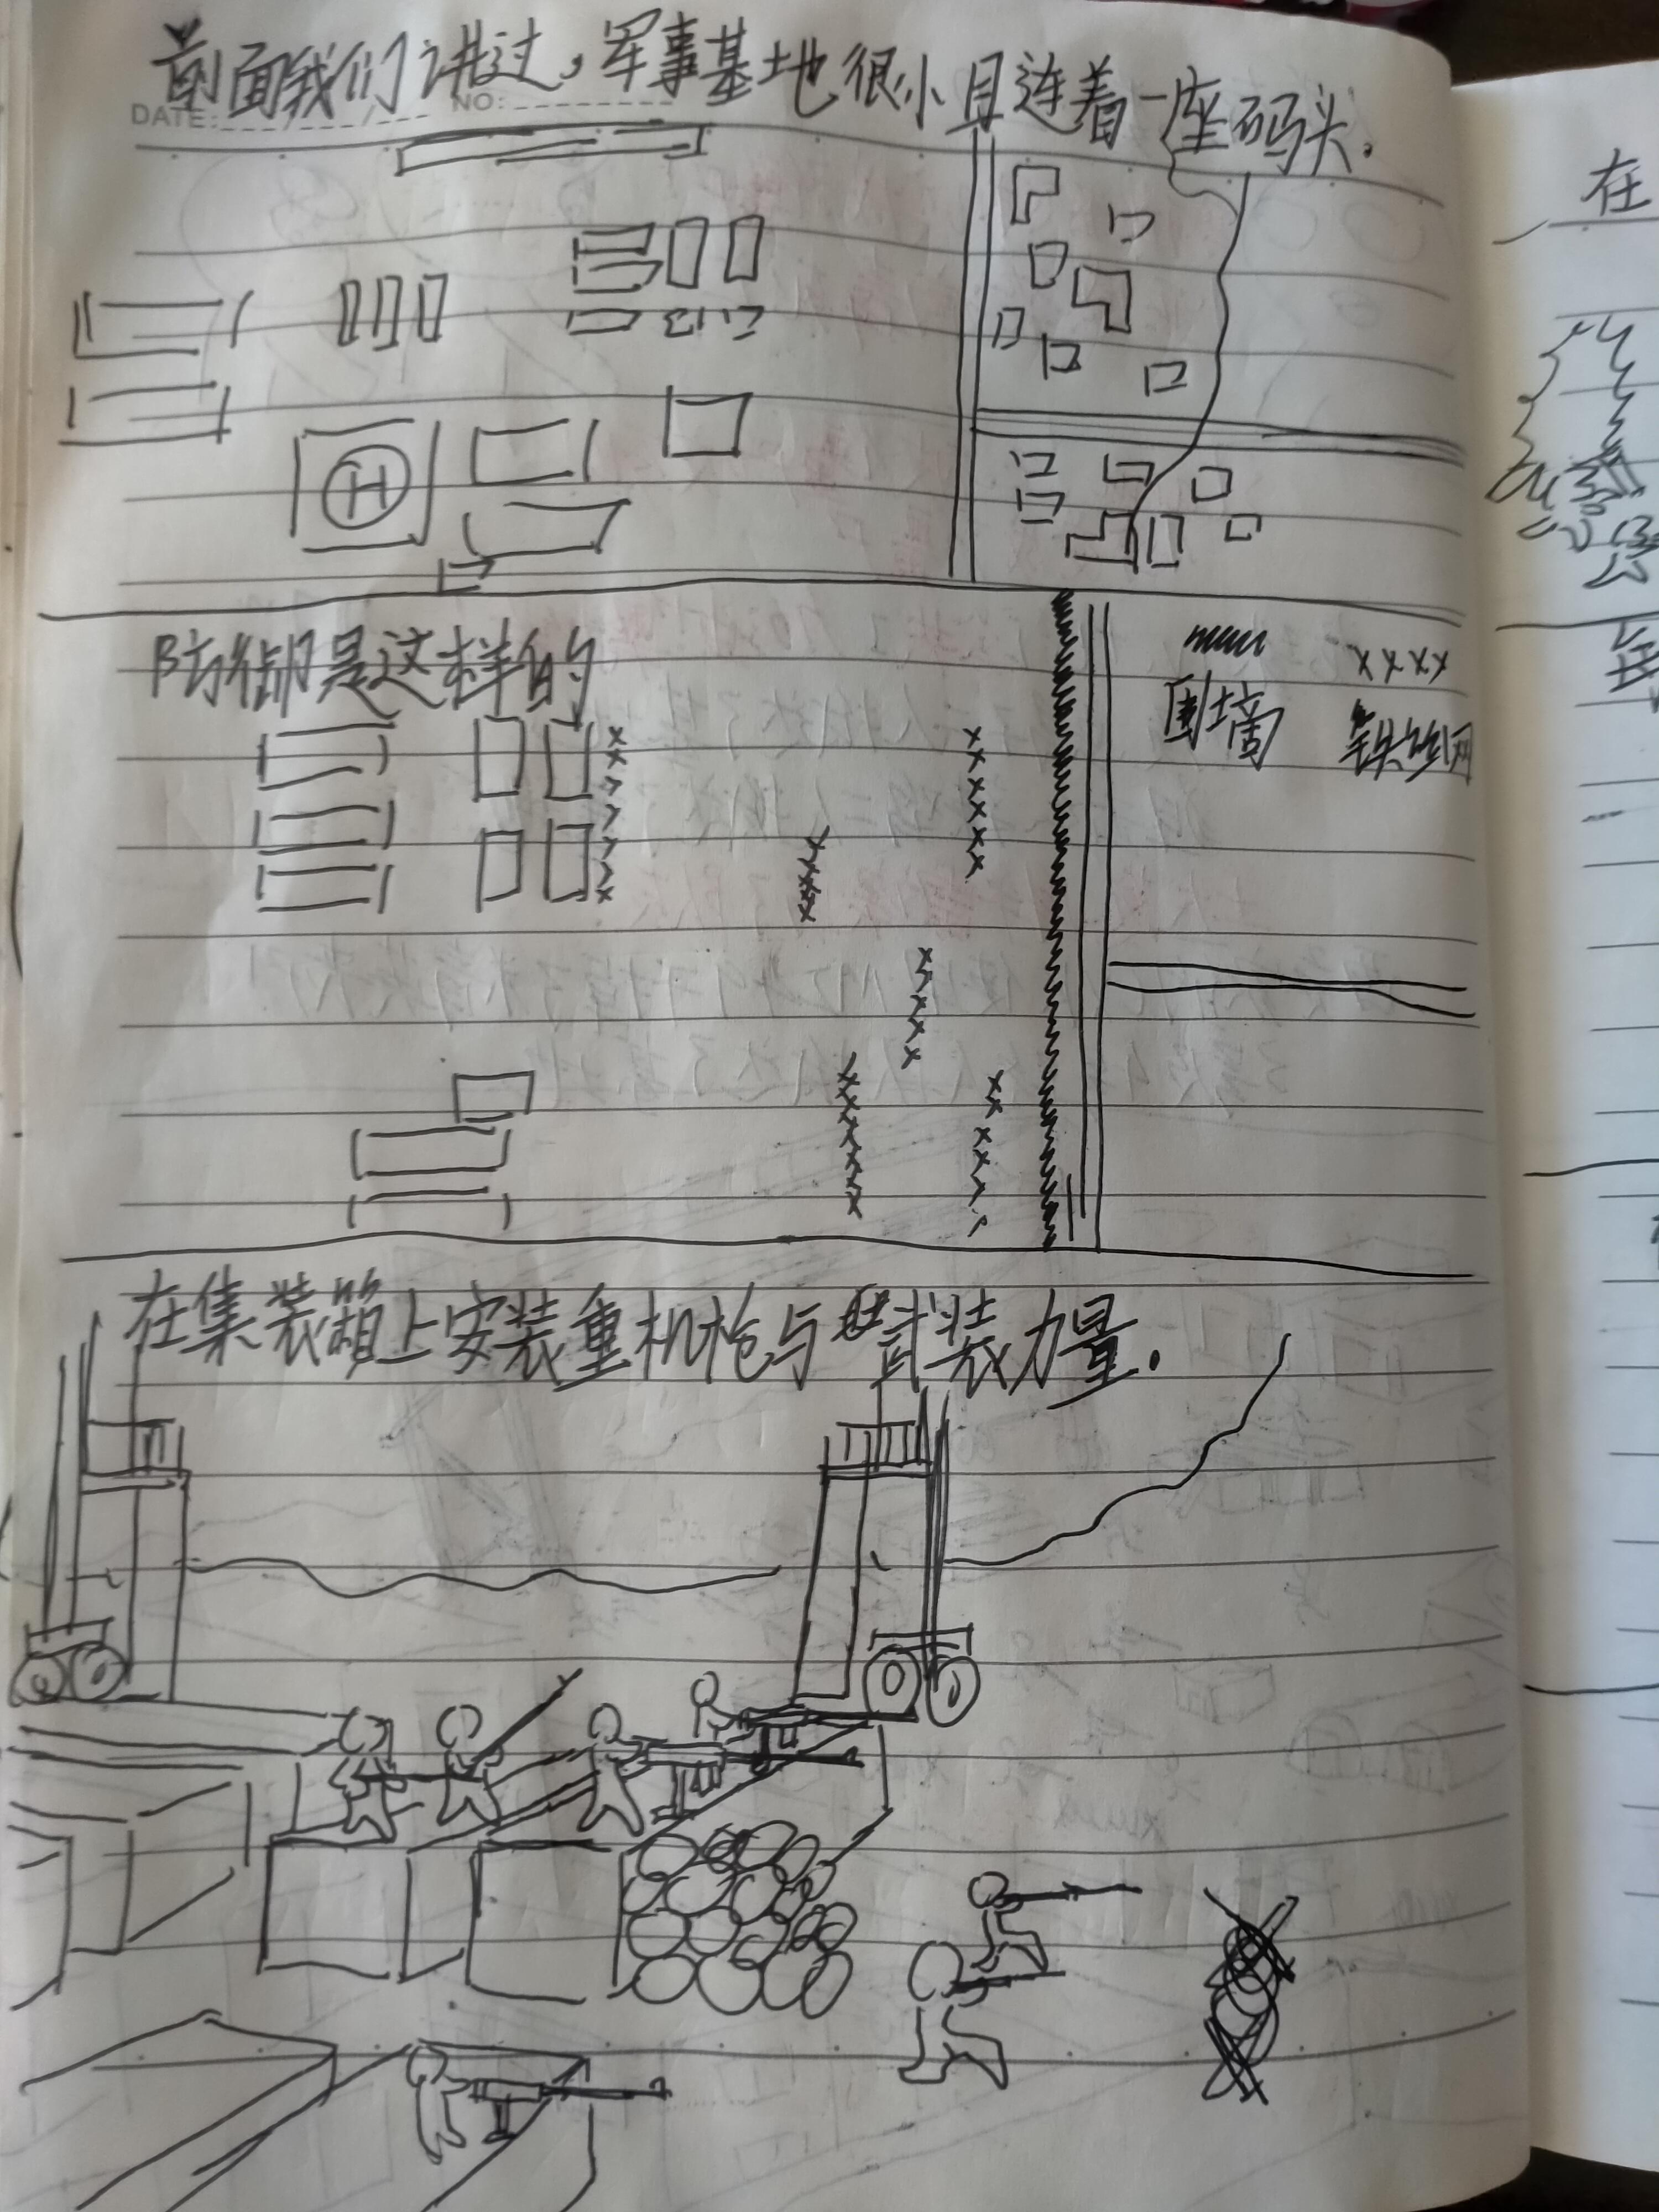 前面我们讲过，军事基地很小且连着一座码头.
DATE: NO:
在
H
防御是这样的
围墙
铁丝网
在集装箱上安装重机枪与武装力量.